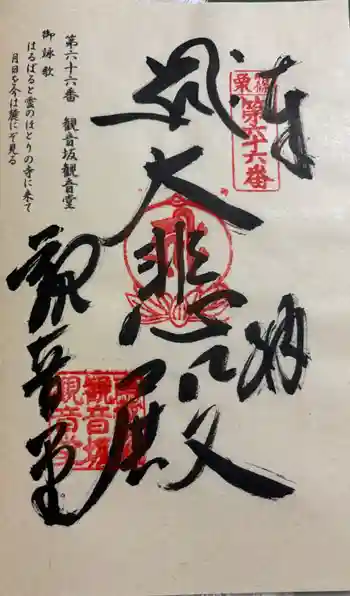 奉拝
篠栗
第六十六番
大悲殿
観音堂
観音坂
観音堂
第六十六番 観音坂観音堂
御詠歌
はるばると雲のほとりの寺に来て
月日を今は麓にぞ見る